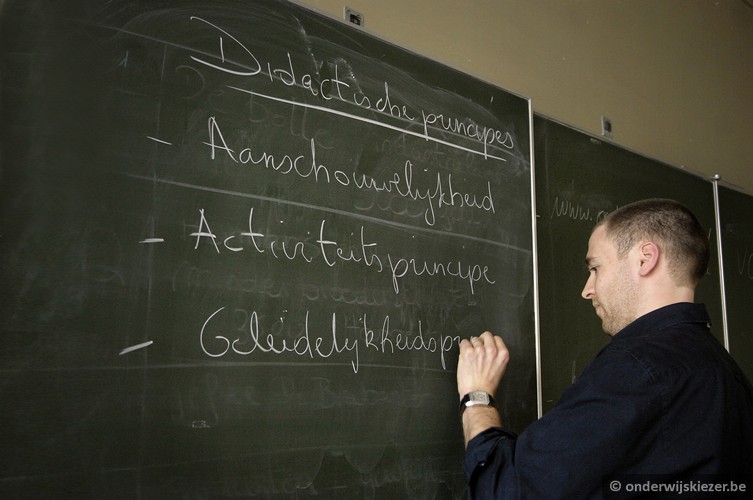 Didactische principes
- Aanschouwelijkheid
- Activiteitsprincipe
- Geleidelijkheidspr
www.
© onderwijskiezer.be